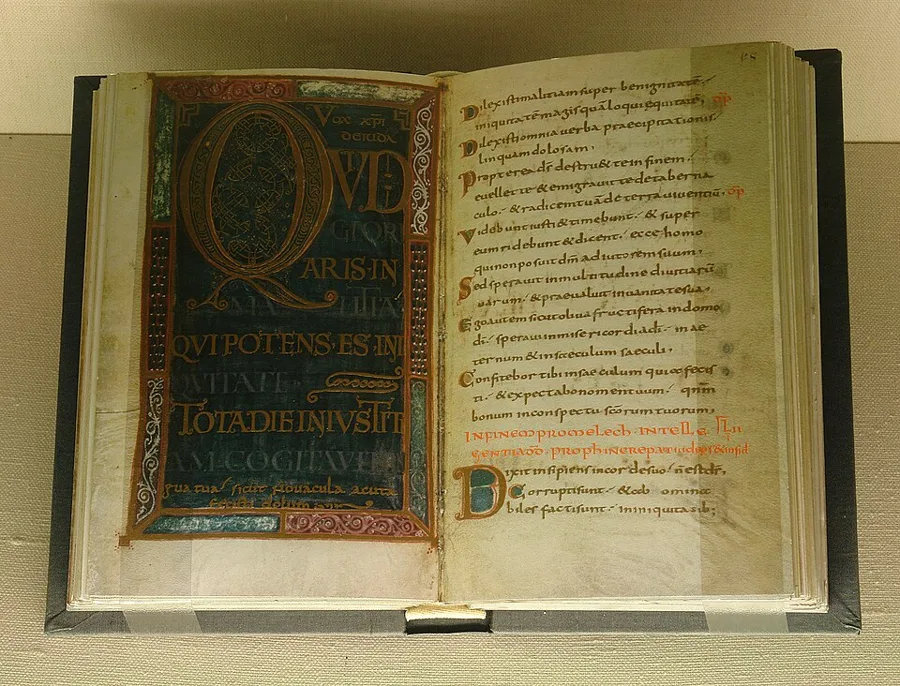 Vox xpi
de iuda
QVID
GLOR
ARIS IN
MALITIA
QVI POTENS·ES·INI
QVITATE
TOTA DIE INIVSTITI
AM·COGITAVIT
gua tua / sicut novacula acuta
Dilexisti malitiam super benignitatē /
iniquitatē magis quā loqui equitatē,
Dilexisti omnia verba praecipitationis·
linguam dolosam,
Propterea d̄s destru&te in finem·
evell& te & emigravit te de taberna
culo· & radicem tuā de terra viventiū·
Videbunt iusti & timebunt· & super
eum ridebunt & dicent· ecce homo
qui non posuit dm̄ adiutorem suum,
Sed speravit in multitudine divitiarū
suarum· & praevaluit in vanitate sua,
Ego autem sicut oliva fructifera in domo
dī· speravi in misericordia dī· in ae
ternum & in saeculum saeculi,
Confitebor tibi in saeculum quia fecis
ti· & expectabo nomen tuum· qnm̄
bonum in conspectu sc̄orum tuorum,
IN FINEM PRO MELECH· INTELLE
Dixit insipiens in corde suo· n̄ est d̄s,
Corrupti sunt· & ab omina
biles facti sunt· in iniquitatib;